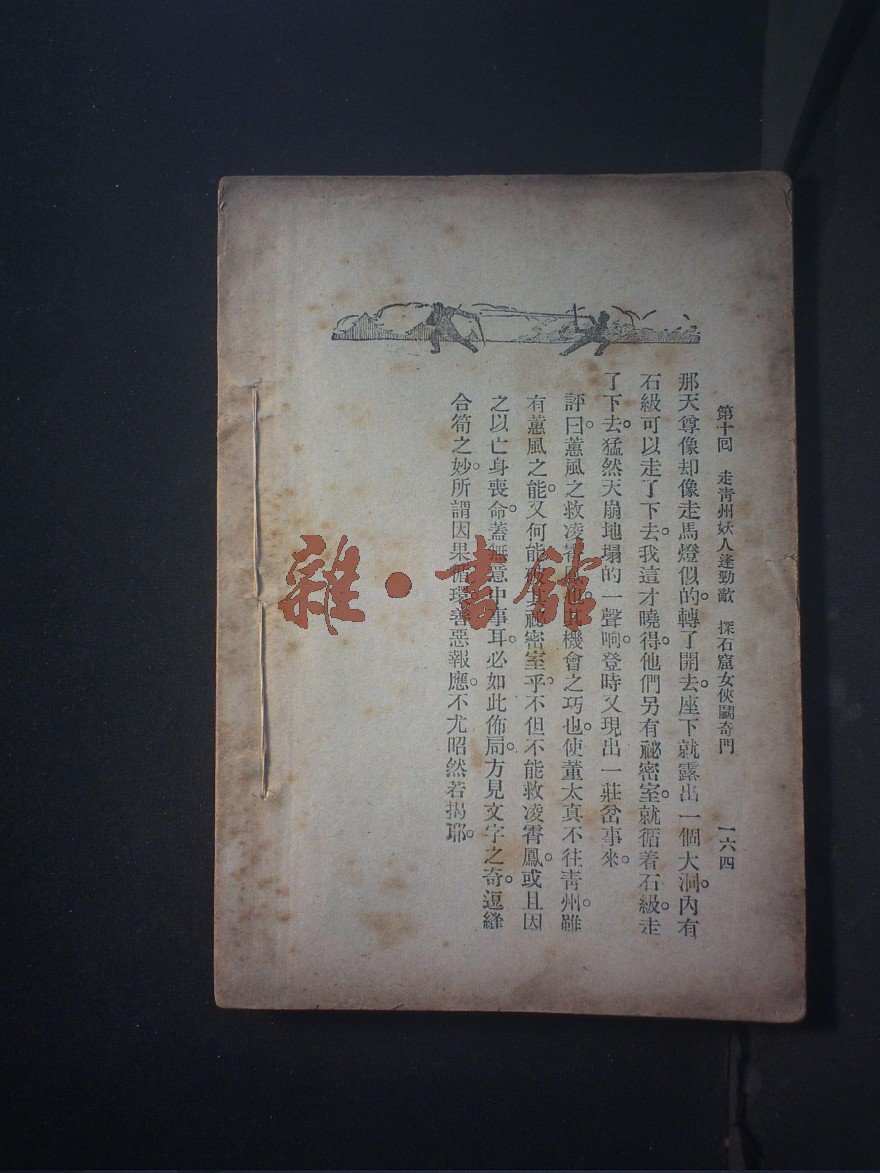 第十回 走青州妖人逢勁敵 探石窟女俠鬭奇門 一六四
那天尊像却像走馬燈似的。轉了開去。座下就露出一個大洞。內有
石級可以走了下去。我這才曉得。他們另有祕密室。就循着石級。走
了下去。猛然天崩地塌的一聲响。登時又現出一莊岔事來。
評曰。蕙風之救凌霄鳳也。其機會之巧也。使董太真不往青州。雖
有蕙風之能。又何能破其祕密室乎。不但不能救凌霄鳳。或且因
之以亡身喪命。蓋無意中事耳。必如此佈局。方見文字之奇。逗縫
合筍之妙。所謂因果循環。善惡報應。不尤昭然若揭耶。
雜·書館